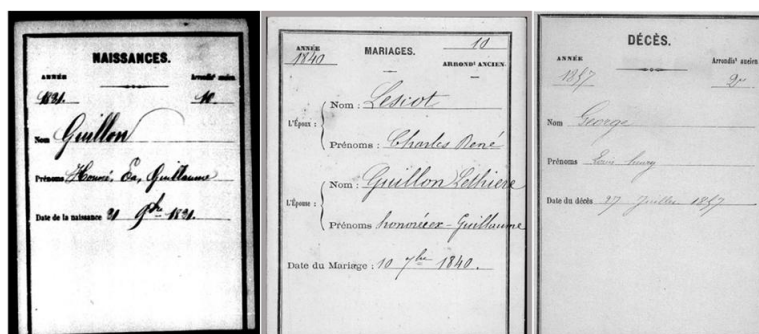 NAISSANCES.
ANNÉE
Arrondt ancien.
1821.
10
Nom Guillon
Prénoms Guillaume
Date de la naissance 21 9bre 1821.
ANNÉE
1840
MARIAGES.
10
ARRONDt ANCIEN.
L'Époux :
Nom : Lescot
Prénoms : Charles René
L'Épouse :
Nom : Guillon Lethière
Prénoms honorée - Guillaume
Date du Mariage : 10 7bre 1840.
DÉCÈS.
ANNÉE
Arrondt ancien
1857
2e
Nom George
Prénoms Louis henry
Date du décès 27 Juillet 1857